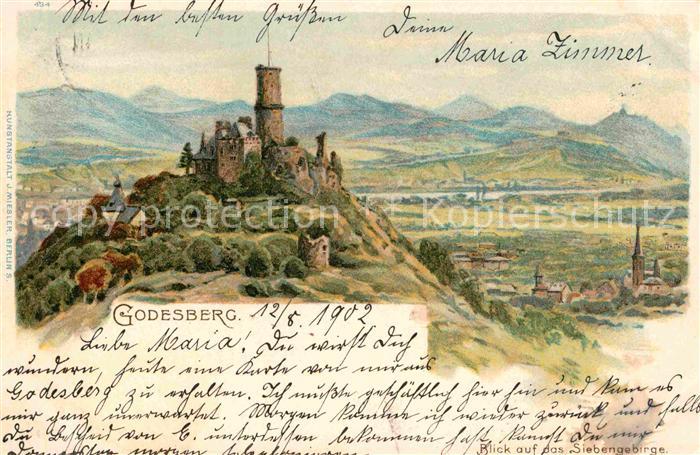 434
Mit den besten Grüßen Deine
Maria Zimmer.
KUNSTANSTALT J. MIESLER, BERLIN S.
copy protection © Kopierschutz
GODESBERG. 12/8. 1902
Liebe Maria! Du wirst Dich
wundern, heute eine Karte von mir aus
Godesberg zu erhalten. Ich mußte geschäftlich hier hin und kam es
mir ganz unerwartet. Morgen komme ich wieder zurück und falls
Du Bescheid von C. unterdessen bekommen hast, kannst Du mir
Donnerstag morgen telephonieren.
Blick auf das Siebengebirge.